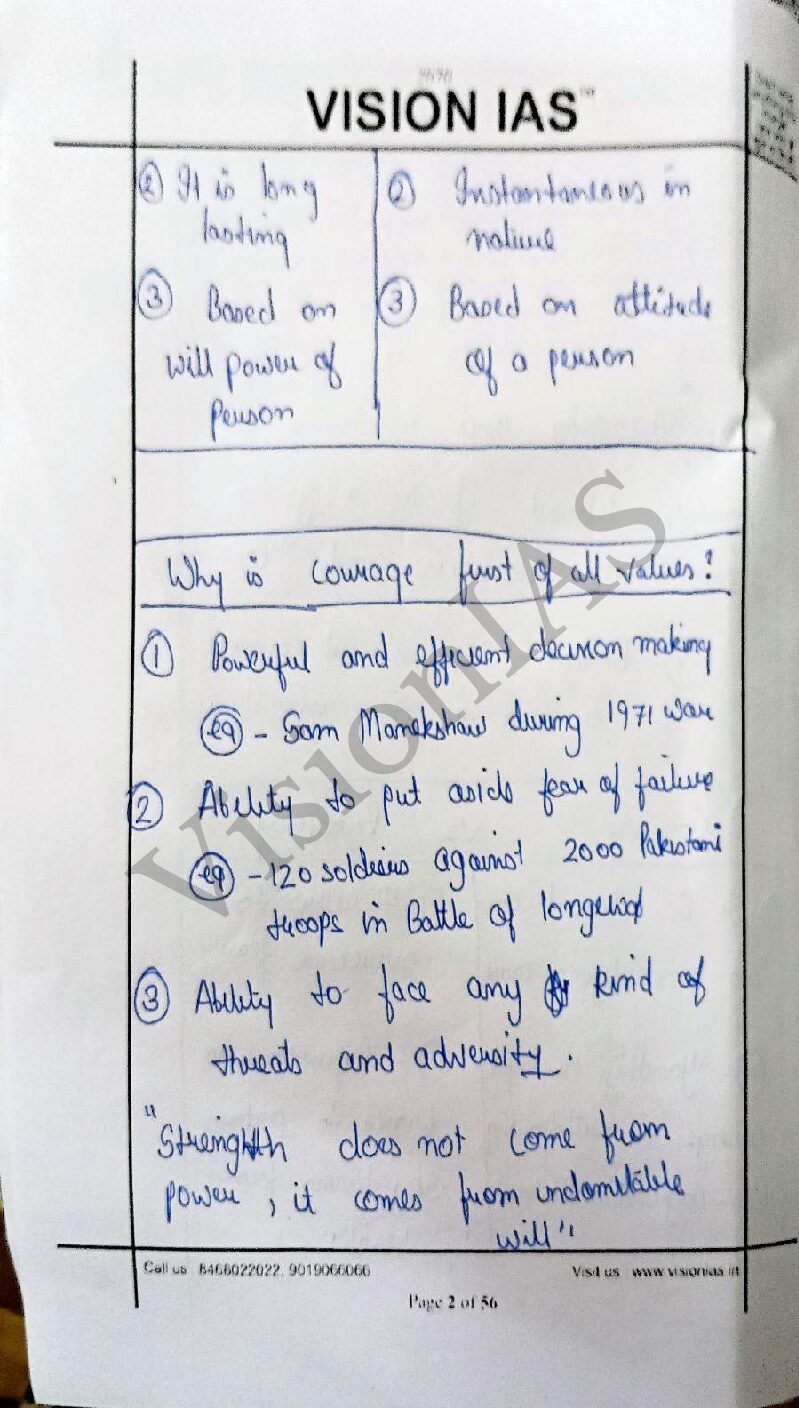 VISION IAS
② It is long
lasting
③ Based on
will power of
person
② Instantaneous in
nature
③ Based on attitude
of a person
Why is courage first of all values?
① Powerful and efficient decision making
eg - Sam Manekshaw during 1971 war
② Ability to put aside fear of failure
eg - 120 soldiers against 2000 Pakistani
troops in Battle of
③ Ability to face any kind of
threats and adversity.
"Strength does not come from
power, it comes from indomitable
will"
VisionIAS
Call us : 8468022022, 9019066066
Visit us : www.visionias.in
Page 2 of 56